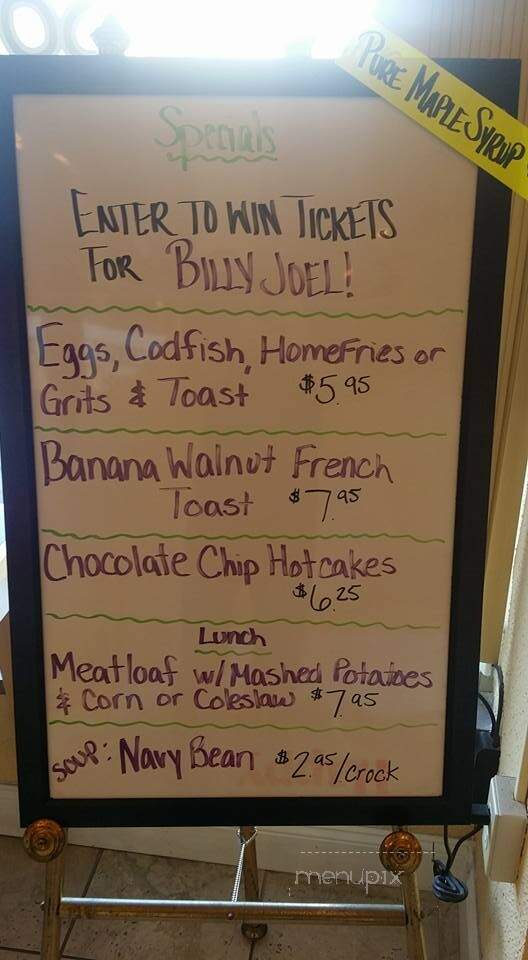 PURE MAPLE SYRUP
Specials
ENTER TO WIN TICKETS
FOR BILLY JOEL!
Eggs, Codfish, HomeFries or
Grits & Toast $5.95
Banana Walnut French
Toast $7.95
Chocolate Chip Hotcakes
$6.25
Lunch
Meatloaf w/Mashed Potatoes
& Corn or Coleslaw $7.95
soup: Navy Bean $2.95/crock
menupix